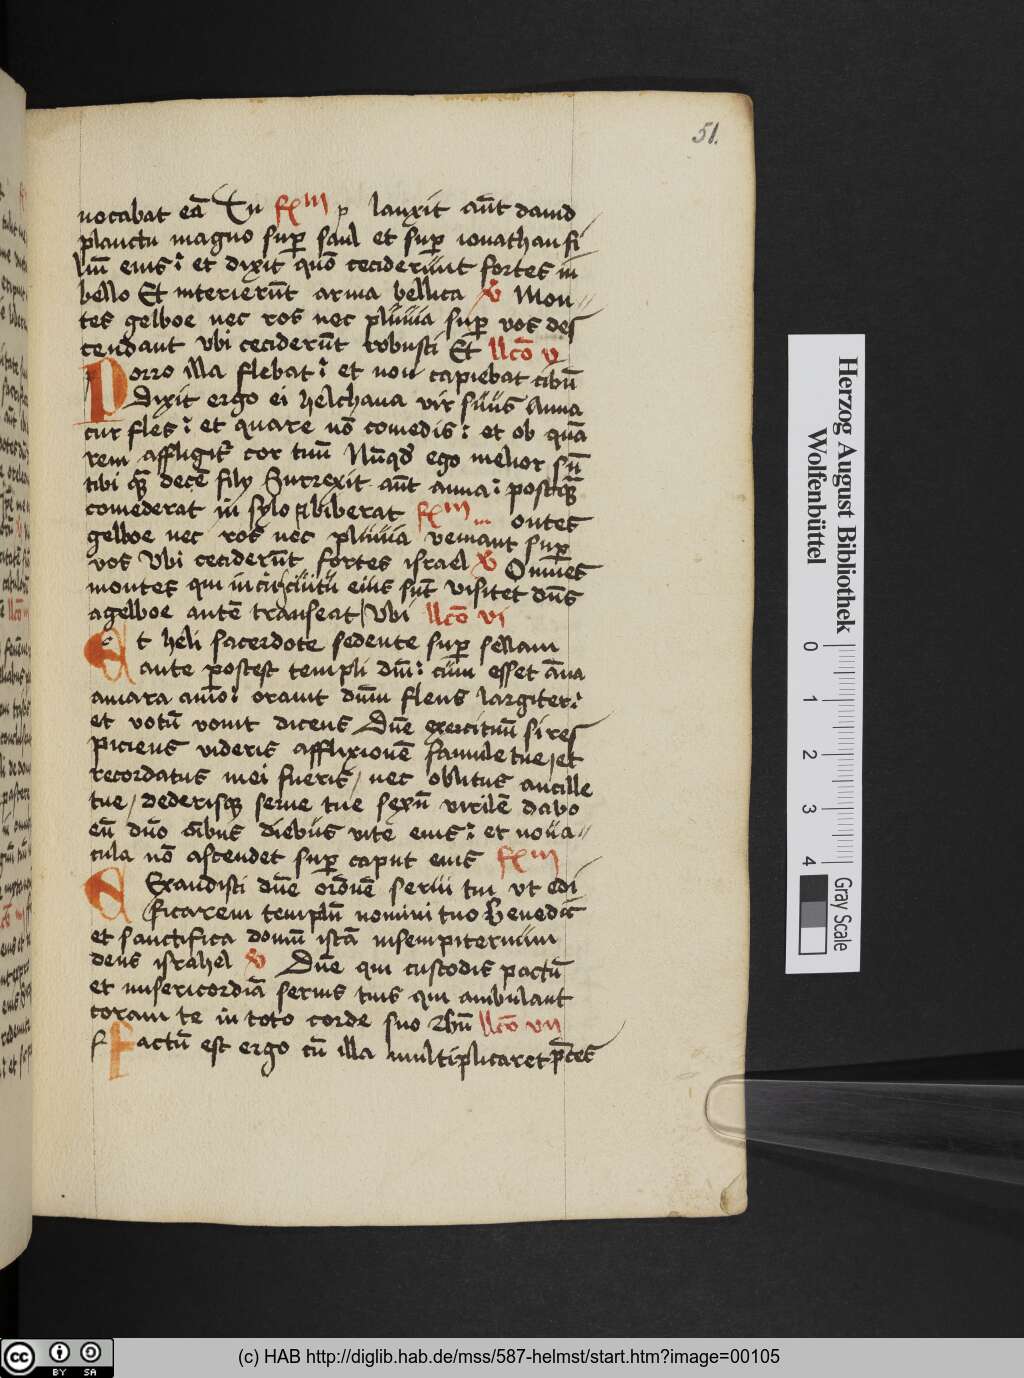 51.
uocabat eā Tu R̄m p lauxit aūt dauid
planctu magno suꝑ saul et suꝑ ionathan fi
liū eius: et dixit quō ceciderunt fortes in
bello Et interierūt arma bellica ꝟ Mon
tes gelboe nec ros nec pluuia suꝑ uos des
cendant Vbi ceciderūt robusti Et llcō v
Porro illa flebat: et non capiebat cibū
Dixit ergo ei helchana vir suus Anna
cur fles: et quare nō comedis: et ob quā
rem affligit᷑ cor tuū Nūqͥd ego melior sū
tibi qͣꝫ decē filij Surrexit aūt anna: postqͣꝫ
comederat in sylo & biberat R̄m ontes
gelboe nec ros nec pluuia veniant suꝑ
vos Vbi ceciderūt fortes israel ꝟ Omnes
montes qui in circuitu eius sūt visitet dn̄s
agelboe autē transeat Vbi llcō vi
Et heli sacerdote sedente suꝑ sellam
ante postest templi dn̄i: cum esset āna
amara aīo: orauit dn̄m flens largiter:
et votū vouit dicens Dn̄e exercituū si res
piciens videris afflixionē famule tue, et
recordatus mei fueris, nec oblitus ancille
tue, dederisqꝫ serue tue sexū virilē dabo
eū dn̄o oībus diebus vite eius: et noua
cula nō ascendet suꝑ caput eius R̄m
Exaudisti dn̄e orōnē serui tui vt edi
ficarem templū nomini tuo Benedic
et sanctifica domū istā insempiternum
deus israhel ꝟ Dn̄e qui custodis pactū
et misericordiā seruis tuis qui ambulant
coram te in toto corde suo Bn̄ llcō vii
Factū est ergo cū illa multiplicaret p̄ces
Herzog August Bibliothek
Wolfenbüttel
0 1 2 3 4
Gray Scale
cc BY SA
(c) HAB http://diglib.hab.de/mss/587-helmst/start.htm?image=00105